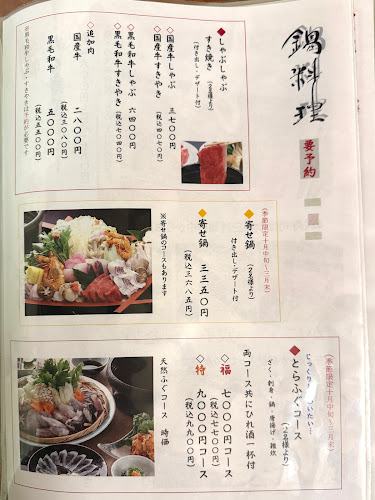 鍋料理
要予約
◆しゃぶしゃぶ
すき焼き
(2名様より)
(付き出し・デザート付)
◇国産牛しゃぶ
◇国産牛すきやき
三七〇〇円
(税込四〇七〇円)
◇黒毛和牛しゃぶ
◇黒毛和牛すきやき
六四〇〇円
(税込七〇四〇円)
◇追加肉
国産牛
二八〇〇円
(税込三〇八〇円)
黒毛和牛
五〇〇〇円
(税込五五〇〇円)
※黒毛和牛しゃぶ・すきやきは予約が必要です
(季節限定十月中旬〜三月末)
◆寄せ鍋
(2名様より)
付き出し・デザート付
◆寄せ鍋
三三五〇円
(税込三六八五円)
※寄せ鍋のコースもあります
(季節限定十月中旬〜三月末)
◆とらふぐコース
(2名様より)
ざく・刺身・鍋・唐揚げ・雑炊
両コース共にひれ酒一杯付
◆福
七〇〇〇円コース
(税込七七〇〇円)
◆特
九〇〇〇円コース
(税込九九〇〇円)
天然ふぐコース
時価